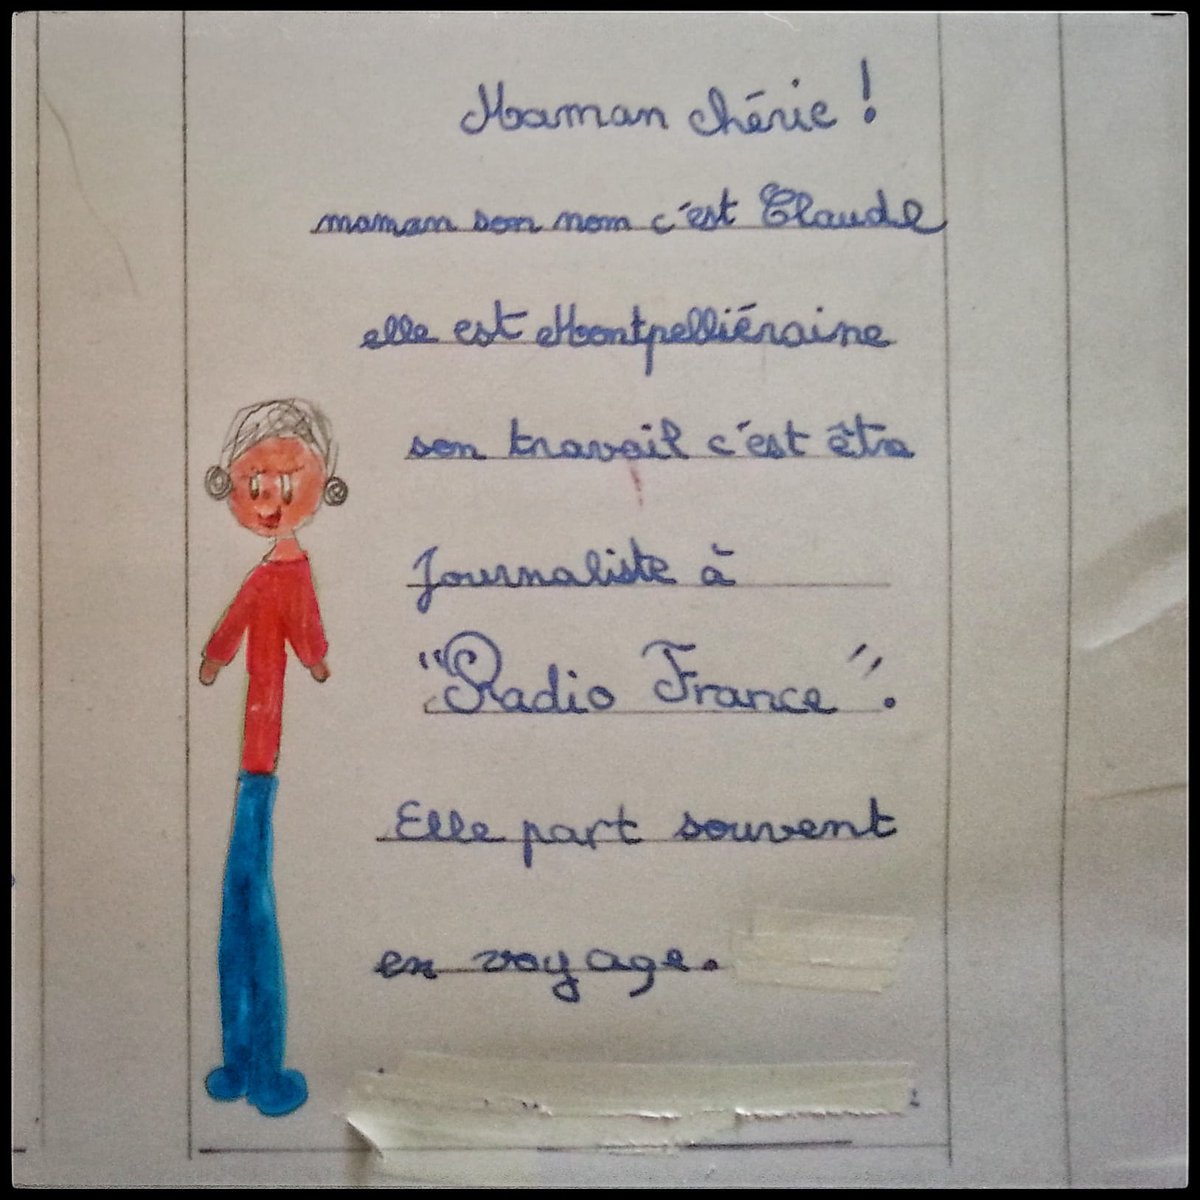 Maman chérie !
maman son nom c'est Claude
elle est Montpelliéraine
son travail c'est être
Journaliste à
"Radio France".
Elle part souvent
en voyage.